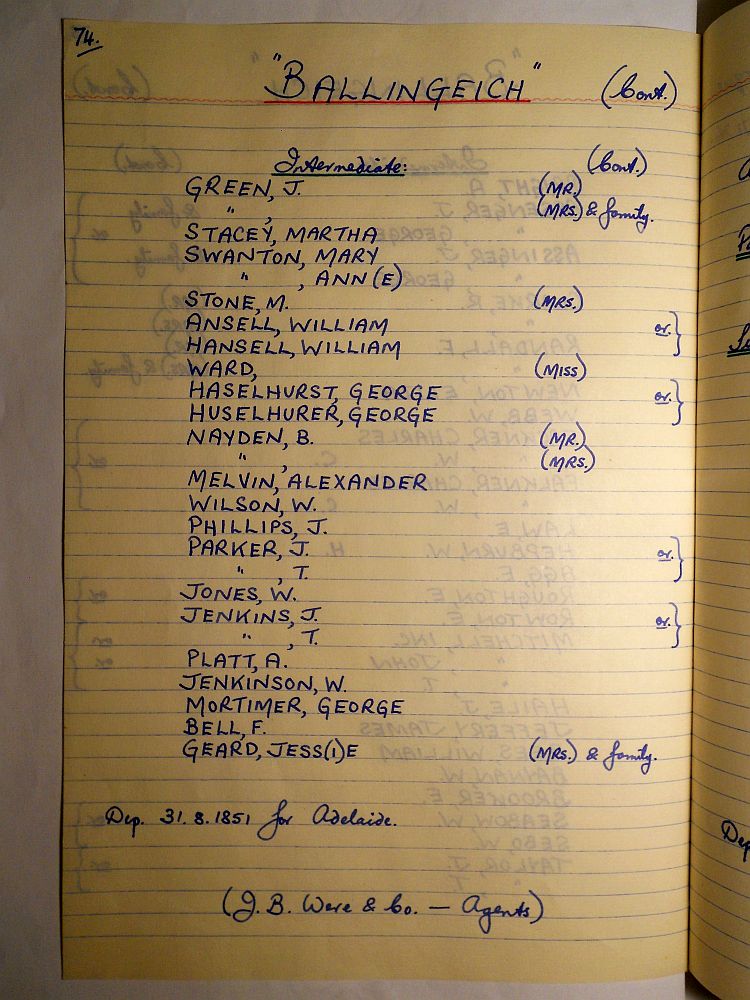 74.
"BALLINGEICH" (Cont.)
Intermediate: (Cont.)
GREEN, J. (MR.)
" , (MRS.) & family.
STACEY, MARTHA
SWANTON, MARY
" , ANN(E)
STONE, M. (MRS.)
ANSELL, WILLIAM or. }
HANSELL, WILLIAM
WARD, (MISS)
HASELHURST, GEORGE or. }
HUSELHURER, GEORGE
NAYDEN, B. (MR.)
" , (MRS.)
MELVIN, ALEXANDER
WILSON, W.
PHILLIPS, J.
PARKER, J. or. }
" , T.
JONES, W.
JENKINS, J. or. }
" , T.
PLATT, A.
JENKINSON, W.
MORTIMER, GEORGE
BELL, F.
GEARD, JESS(I)E (MRS.) & family.
Dep. 31.8.1851 for Adelaide.
(J. B. Were & Co. — Agents)